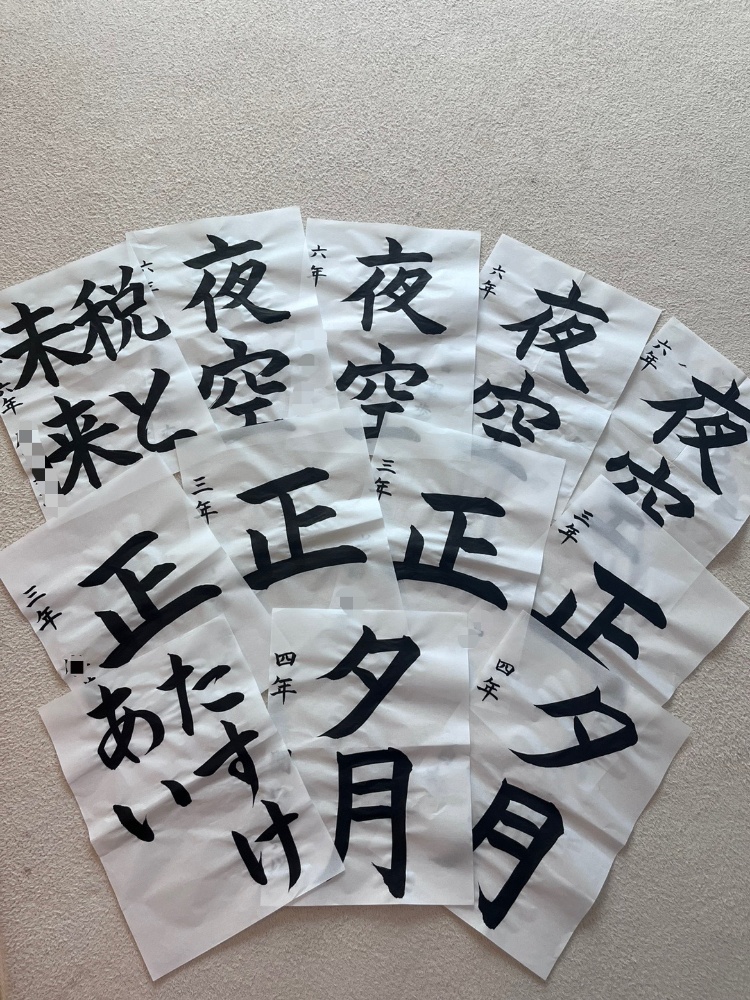 税と
未来
六年
夜空
六年
夜空
六年
夜空
六年
夜空
六年
正
三年
正
三年
正
三年
正
三年
たすけ
あい
夕月
四年
夕月
四年